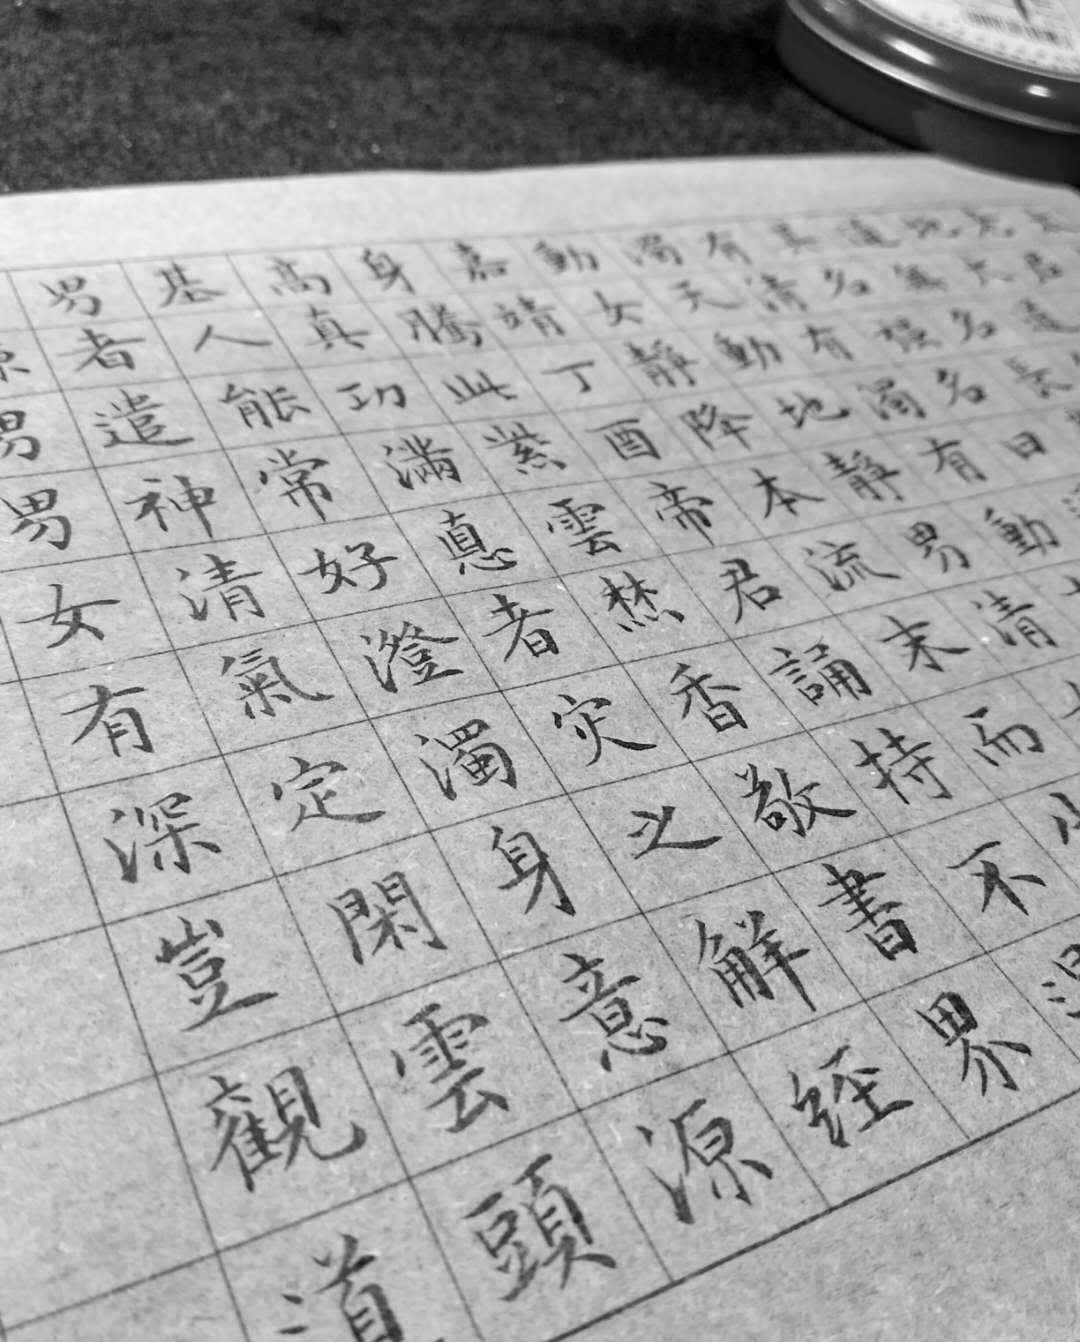 其名強名曰
有清有濁有動
濁天動地靜男清
動女靜降本流末而
嘉靖丁酉帝君誦持不
身騰此紫雲焚香敬書界
高真功滿悳者灾之解經
基人能常好澄濁身意源
男者遣神清氣定閑雲頭
男男女有深豈觀道